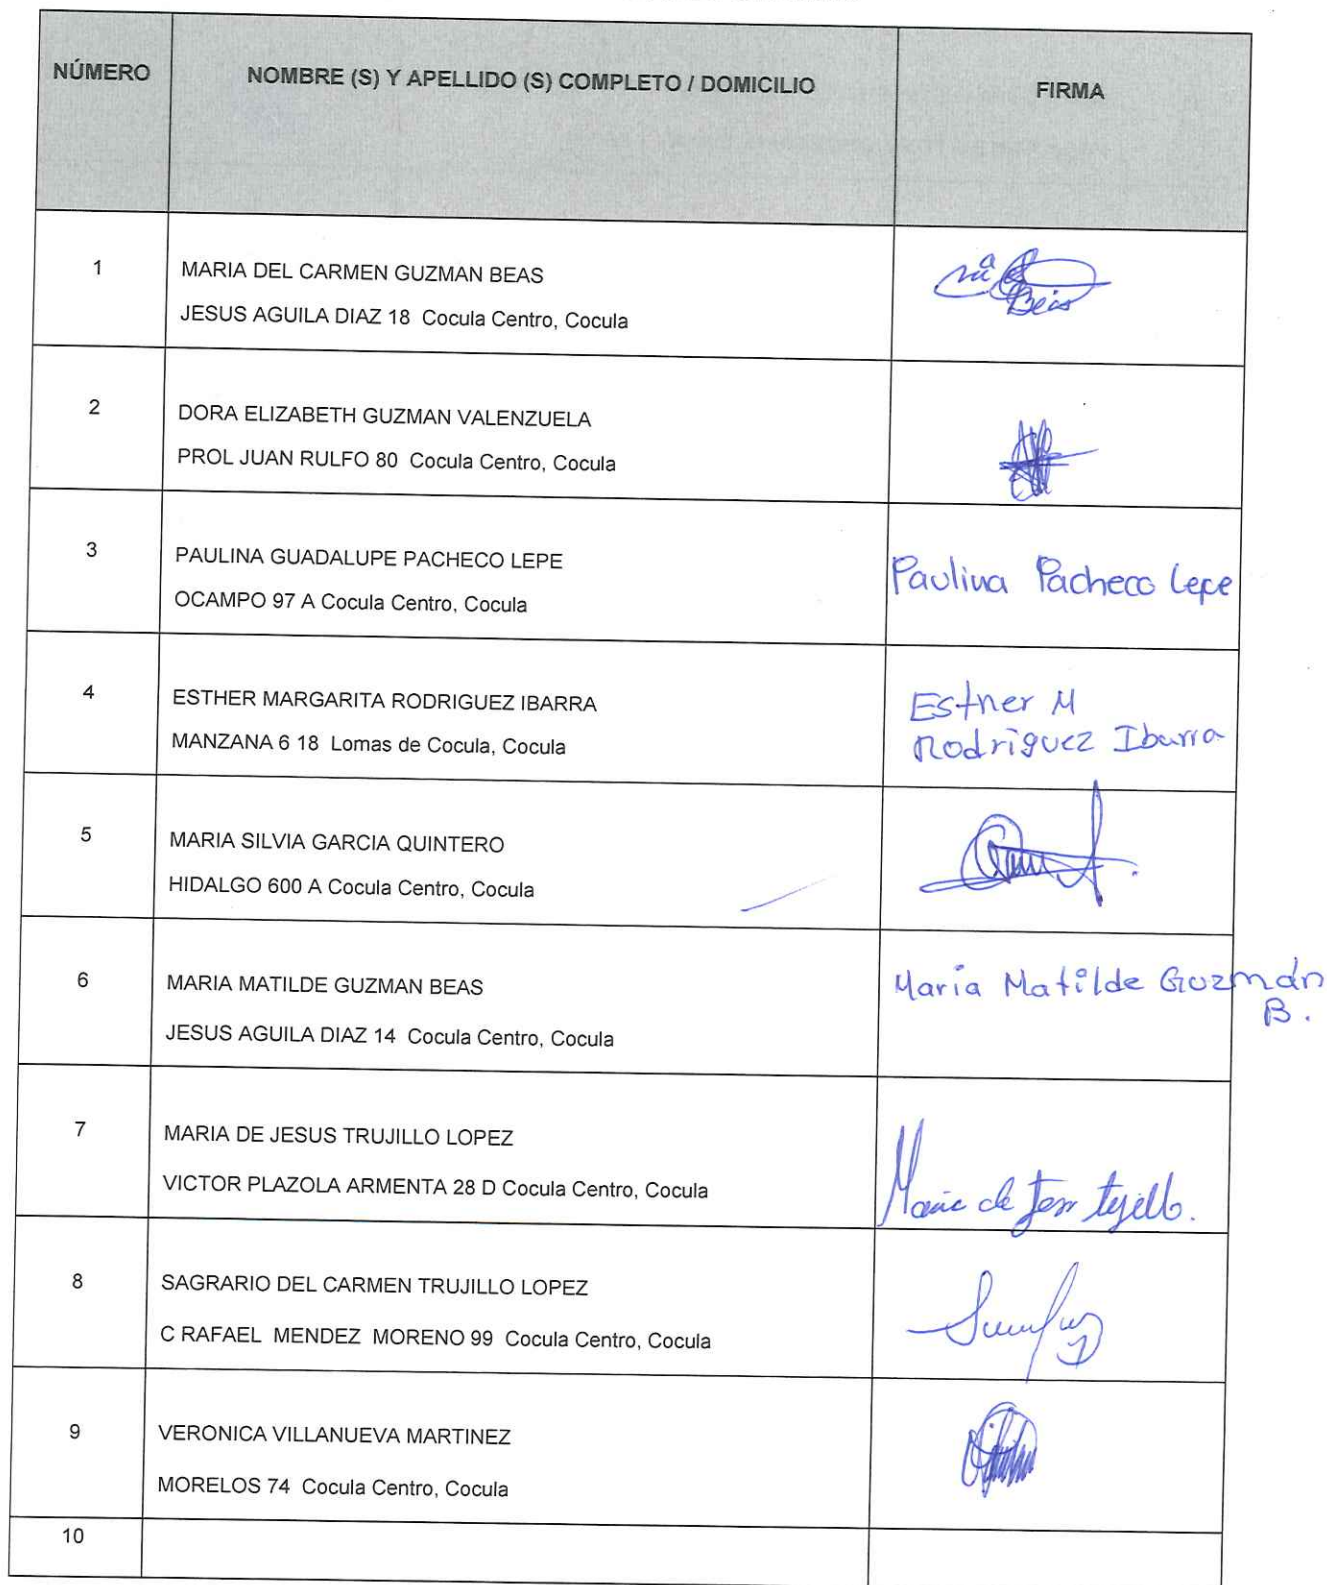 NÚMERO
NOMBRE (S) Y APELLIDO (S) COMPLETO / DOMICILIO
FIRMA
1
MARIA DEL CARMEN GUZMAN BEAS
JESUS AGUILA DIAZ 18 Cocula Centro, Cocula
Mª
Beas
2
DORA ELIZABETH GUZMAN VALENZUELA
PROL JUAN RULFO 80 Cocula Centro, Cocula
3
PAULINA GUADALUPE PACHECO LEPE
OCAMPO 97 A Cocula Centro, Cocula
Paulina Pacheco Lepe
4
ESTHER MARGARITA RODRIGUEZ IBARRA
MANZANA 6 18 Lomas de Cocula, Cocula
Esther M
Rodriguez Ibarra
5
MARIA SILVIA GARCIA QUINTERO
HIDALGO 600 A Cocula Centro, Cocula
6
MARIA MATILDE GUZMAN BEAS
JESUS AGUILA DIAZ 14 Cocula Centro, Cocula
María Matilde Guzmán
B.
7
MARIA DE JESUS TRUJILLO LOPEZ
VICTOR PLAZOLA ARMENTA 28 D Cocula Centro, Cocula
Maria de Jesus
8
SAGRARIO DEL CARMEN TRUJILLO LOPEZ
C RAFAEL MENDEZ MORENO 99 Cocula Centro, Cocula
9
VERONICA VILLANUEVA MARTINEZ
MORELOS 74 Cocula Centro, Cocula
10